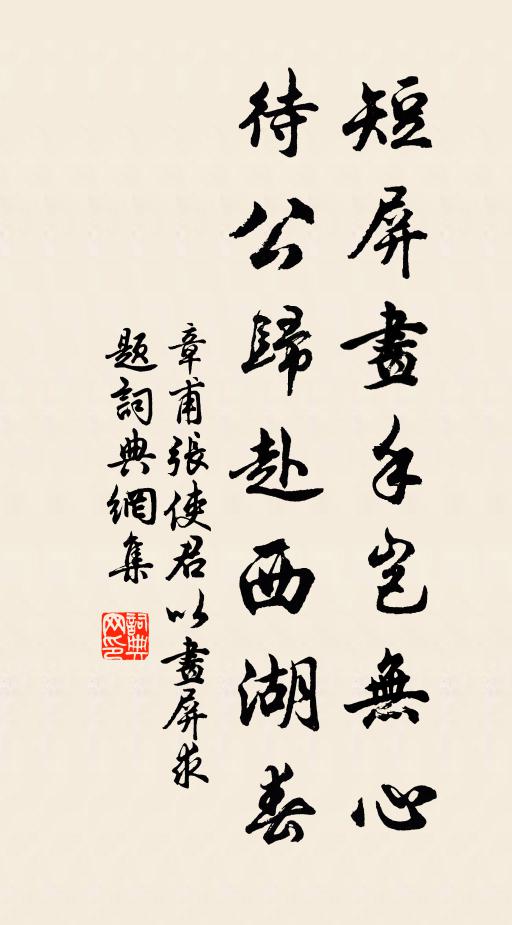 短屏畫手豈無心
待公歸赴西湖春
章甫張使君以畫屏求
題詞典網集
詞典网印